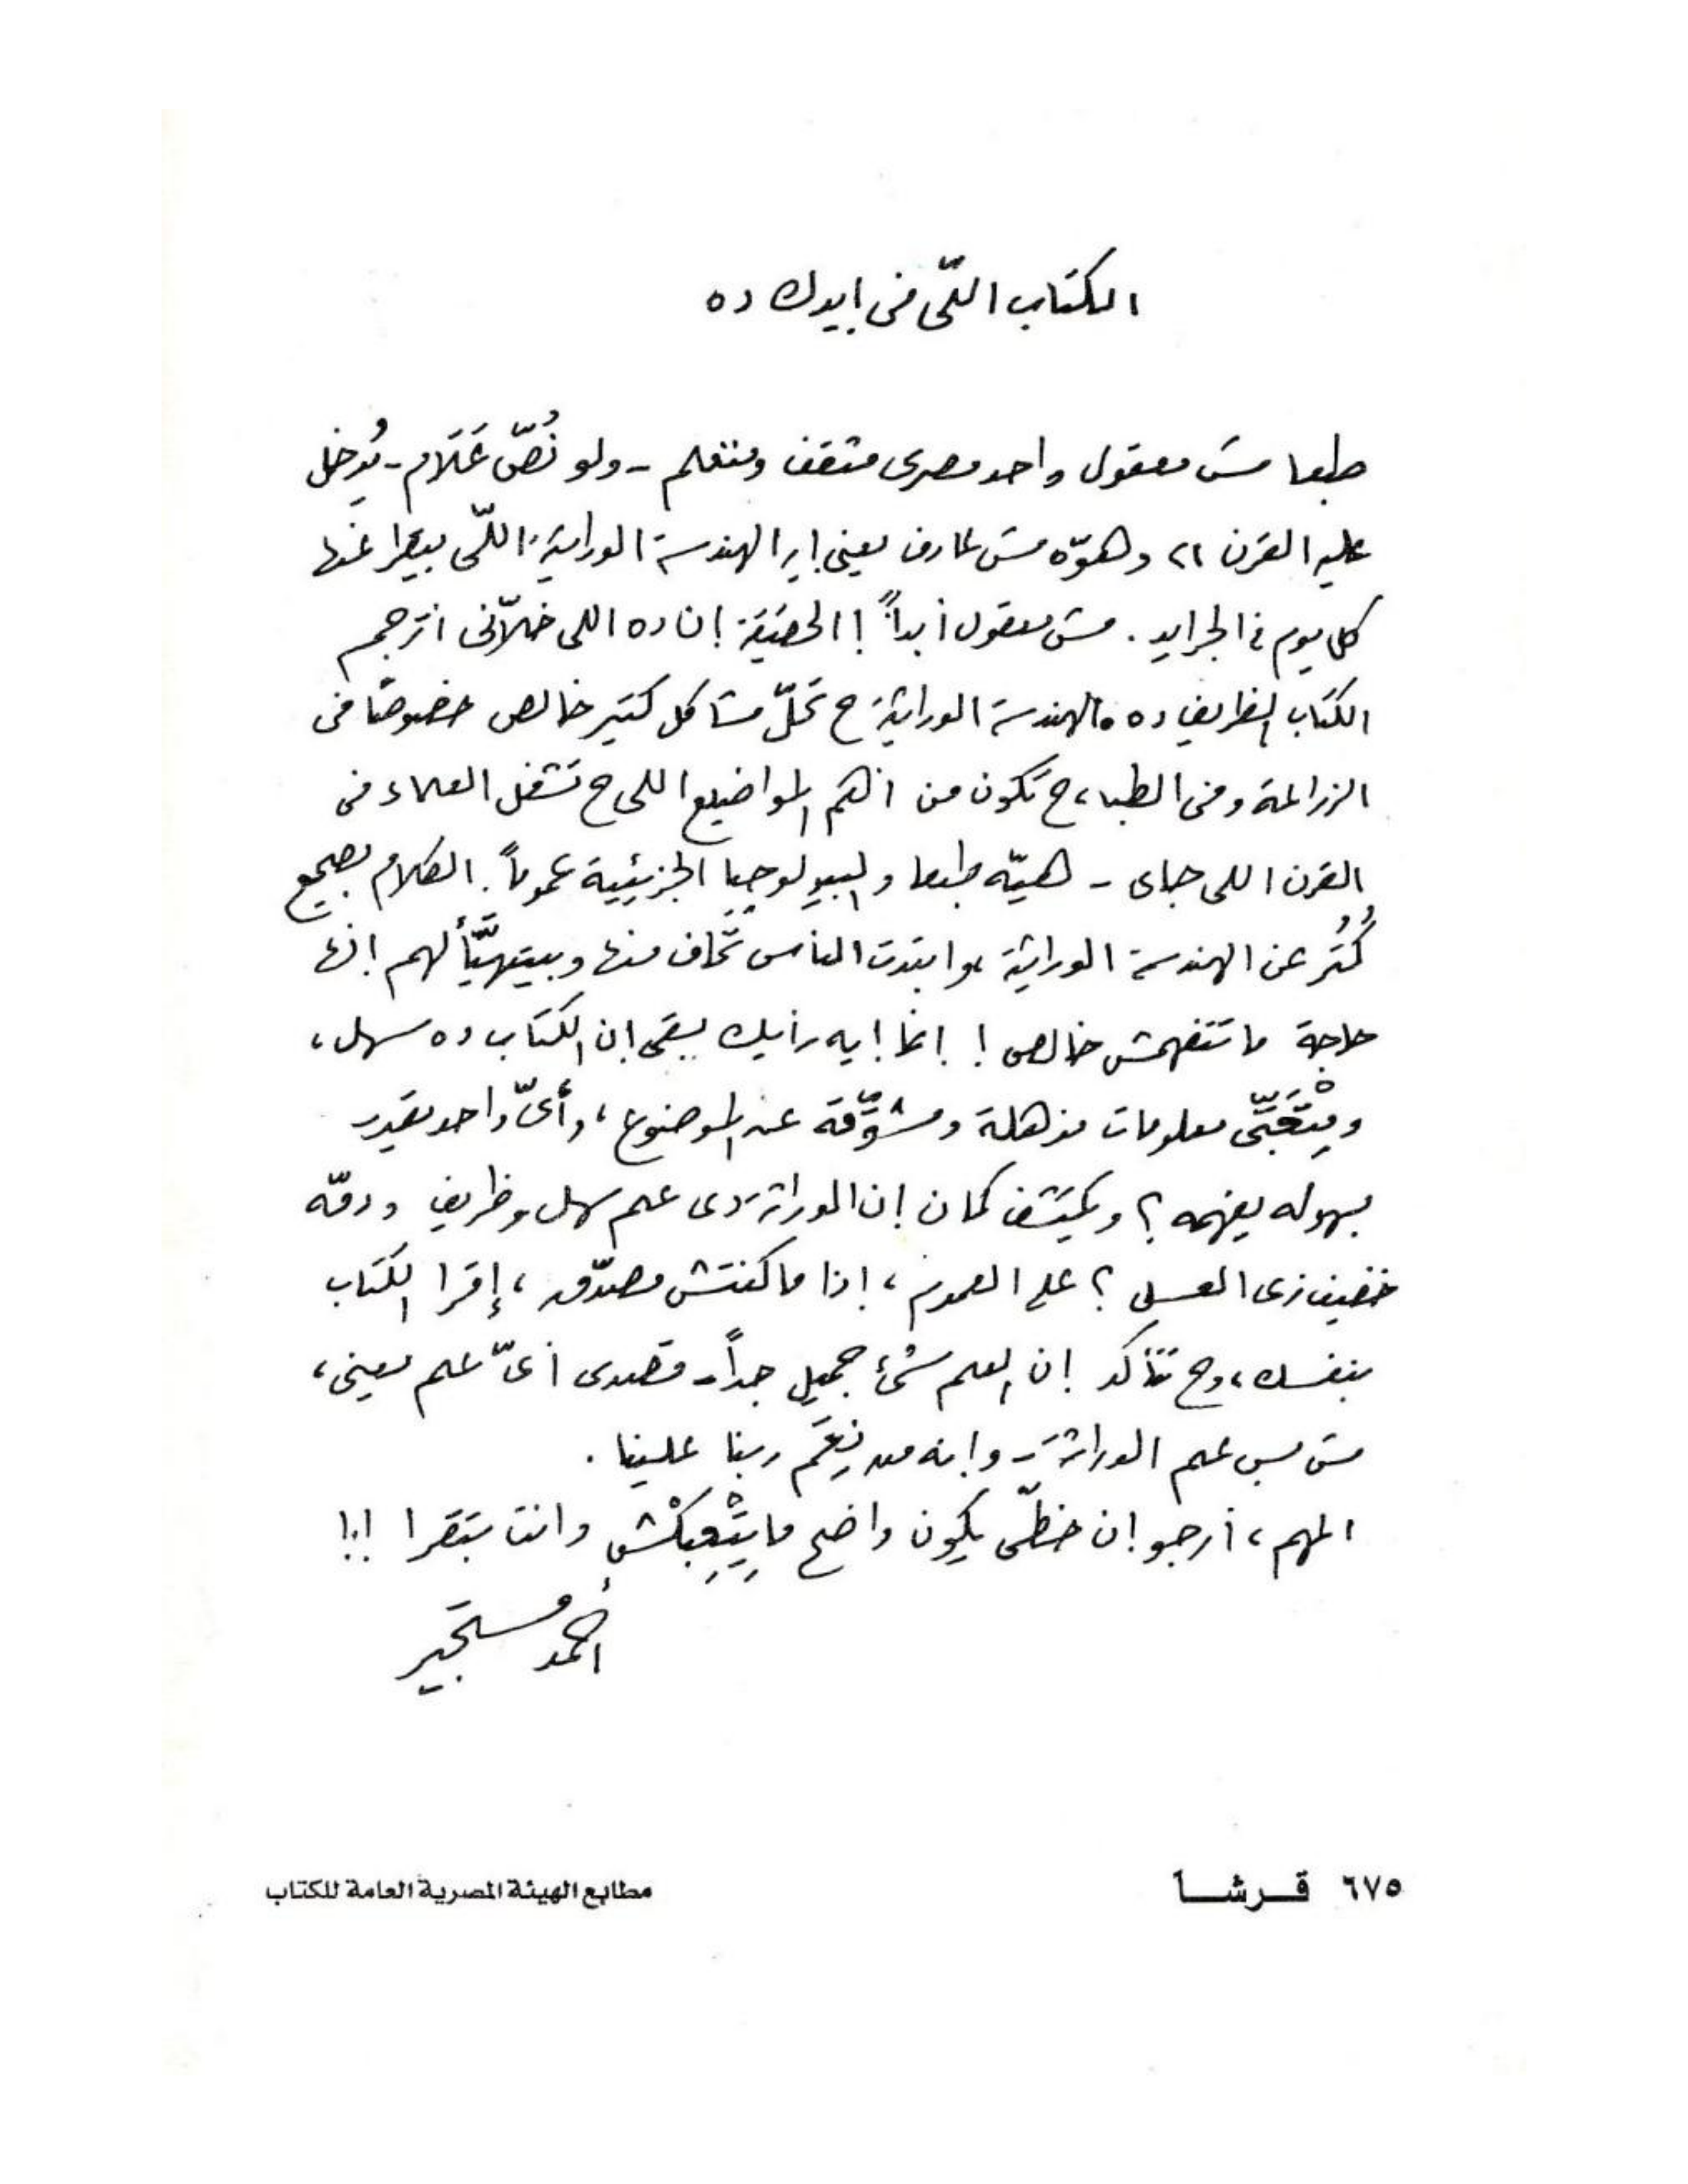 الكتاب اللّى فى إيدك ده
طبعا مش معقول واحد مصرى مثقف ومتعلم - ولو نُصّ عَلَام - يُدخل
عليه القرن ٢١ وهوّه مش عارف يعنى إيه الهندسة الوراثية اللّى بيقرا عنها
كل يوم فى الجرايد. مش معقول أبداً! الحقيقة إن ده اللى خلّانى أترجم
الكتاب الظريف ده، الهندسة الوراثية ح تحلّ مشاكل كتير خالص خصوصًا فى
الزراعة وفى الطب، ح تكون من أهم المواضيع اللى ح تشغل العلماء فى
القرن اللى جاى - هيّه طبعا والبيولوجيا الجزيئية عموماً. الكلام بصحيح
كُتُر عن الهندسة الوراثية، وابتدت الناس تخاف منها وبيتهيّألهم إنها
حاجة ما تتفهمش خالص! إنما إيه رأيك بقى إن الكتاب ده سهل،
ومِتْعَبِّى معلومات مذهلة ومشوّقة عن الموضوع، وأىّ واحد يقدر
بسهوله يفهمه؟ ويكتشف كمان إن الوراثة دى علم سهل وظريف ودمّه
خفيف زى العسل؟ على العموم، إذا ما كنتش مصدّق، إقرا الكتاب
بنفسك، وح تتأكد إن العلم شئ جميل جداً - قصدى أىّ علم يعنى،
مش بس علم الوراثة - وإنه من نِعَم ربنا علينا.
المهم، أرجو إن خطّى يكون واضح ما يِتْعِبكْش وانت بتقرا !!!
أحمد مستجير
٦٧٥ قرشا
مطابع الهيئة المصرية العامة للكتاب